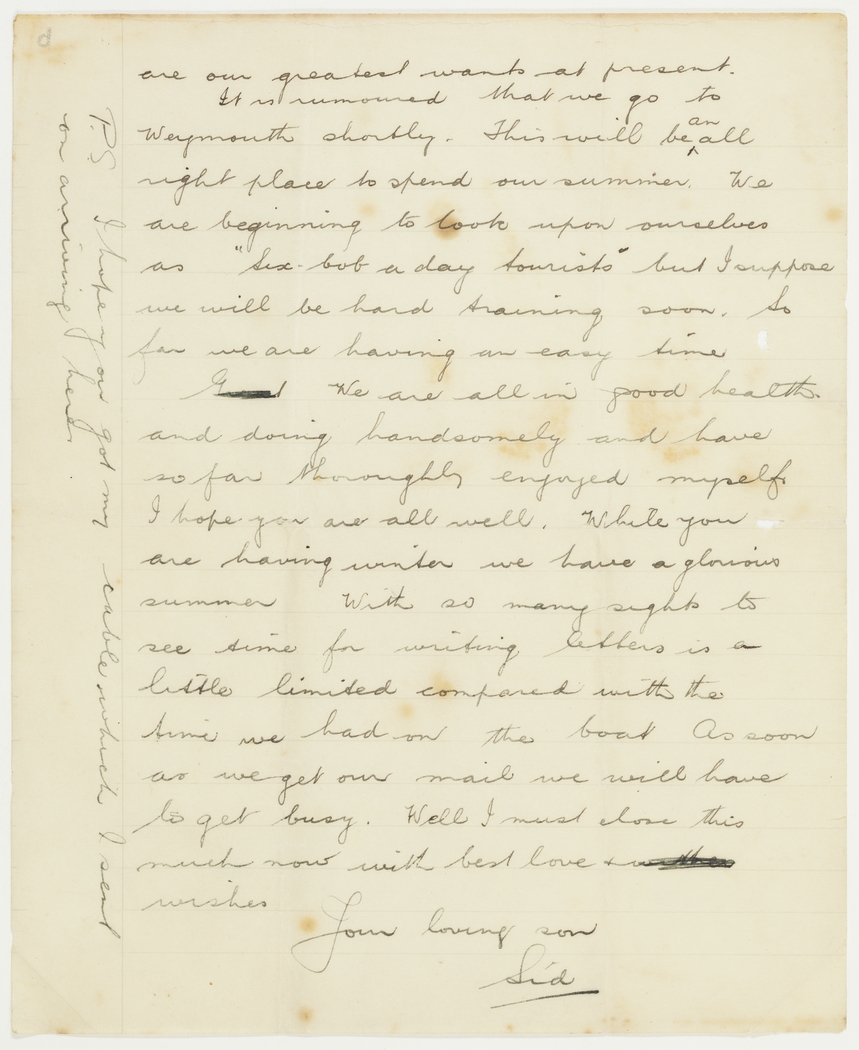 are our greatest wants at present.
It is rumoured that we go to
Weymouth shortly. This will be an all
right place to spend our summer. We
are beginning to look upon ourselves
as "Six-bob a day tourists" but I suppose
we will be hard training soon. So
far we are having an easy time
We are all in good health.
and doing handsomely and have
so far thoroughly enjoyed myself.
I hope you are all well. While you
are having winter we have a glorious
summer With so many sights to
see time for writing letters is a
little limited compared with the
time we had on the boat As soon
as we get our mail we will have
to get busy. Well I must close this
much now with best love +
wishes
Your loving son
Sid
P.S I hope you got my cable which I sent
on arriving here.